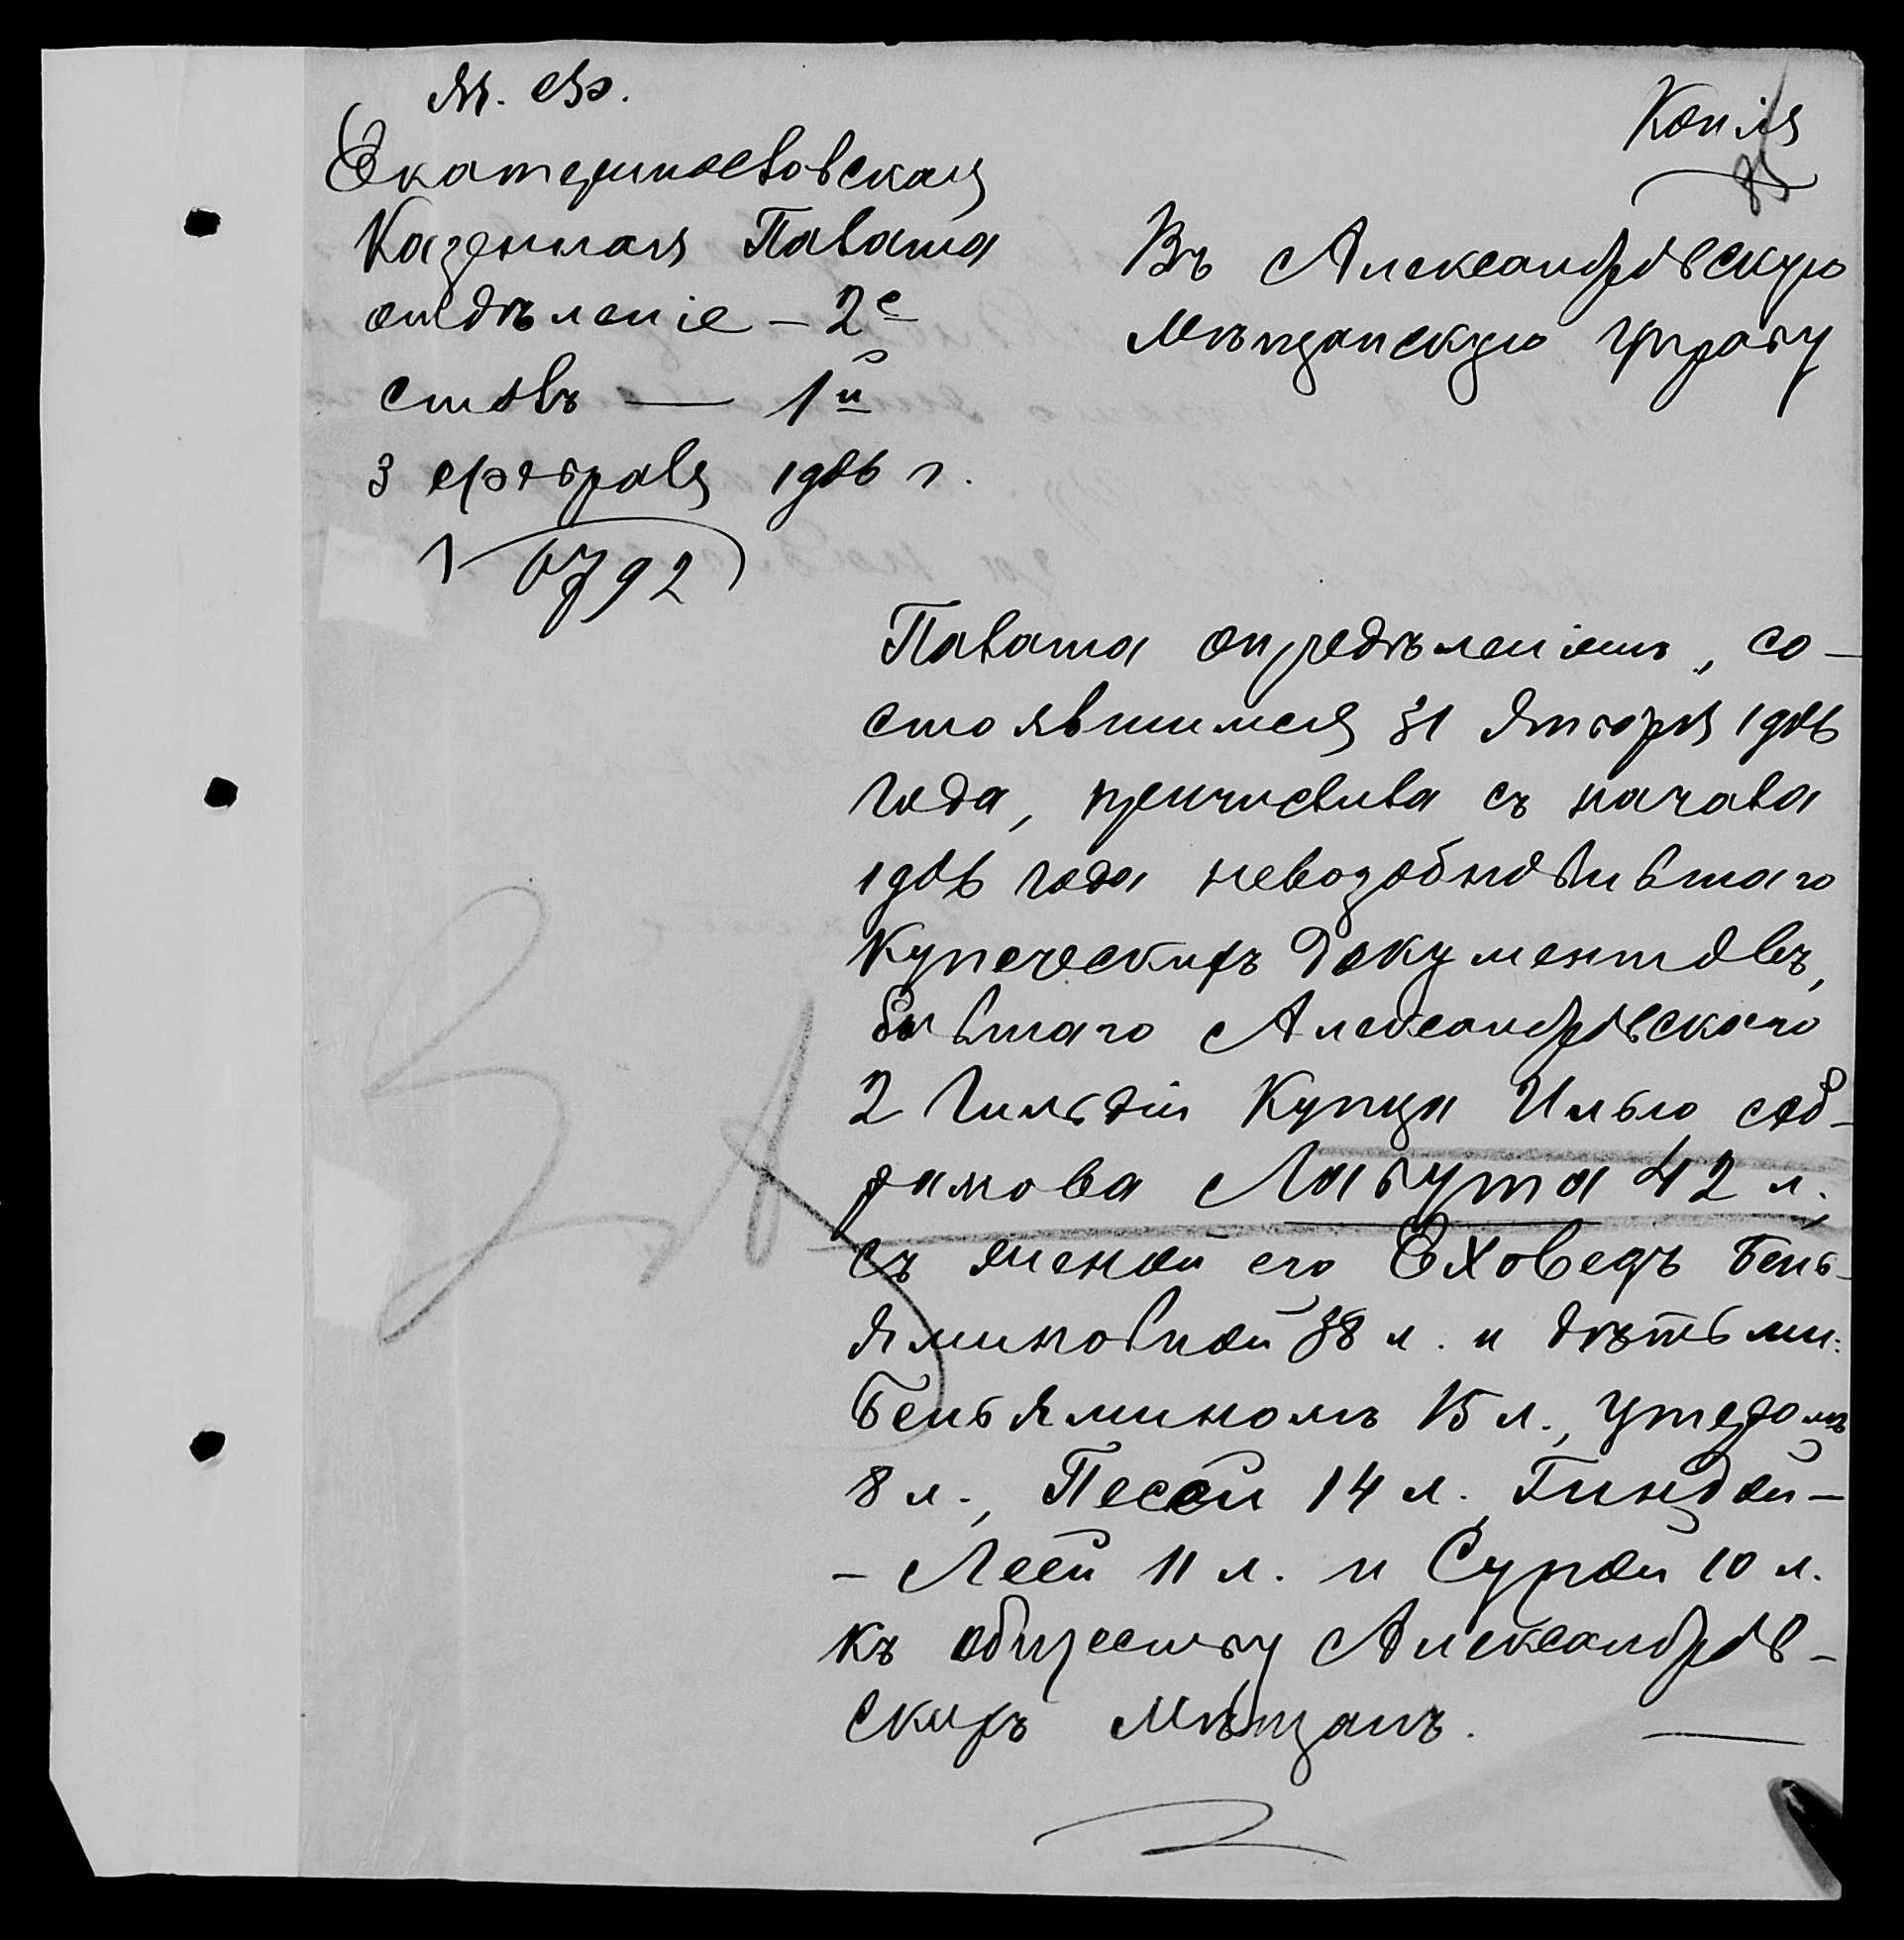 М. Ф.
Екатеринославская
Казенная Палата
отдѣленіе – 2е
столъ — 1й
3 февраля 1906 г.
№ 6792
Копія
Въ Александровскую
Мѣщанскую Управу
Палата опредѣленіемъ, со-
стоявшимся 31 Января 1906
года, причислила съ начала
1906 года невозобновившаго
купеческихъ документовъ,
бывшаго Александровского
2 гильдіи Купца Илью Аб-
рамова Лагута 42 л.,
съ женой его Еховедъ Бень-
яминовной 38 л. и дѣтьми:
Беньяминомъ 15 л.,
8 л., Песей 14 л., Гиндой-
- Леей 11 л. и Сурой 10 л.
къ обществу Александров-
скихъ мѣщанъ.